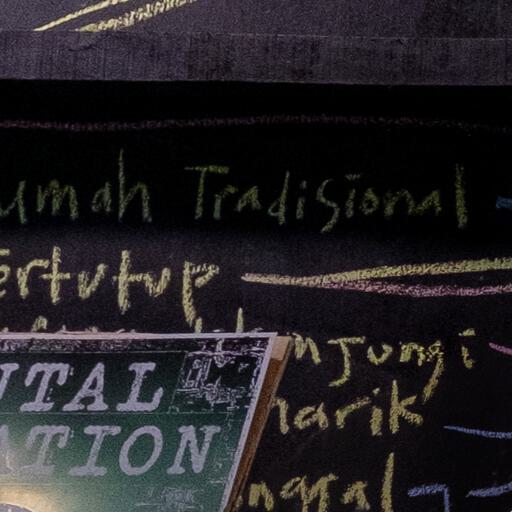 umah Tradisional
ertutup
njungi
narik
nggal
NTAL
ATION